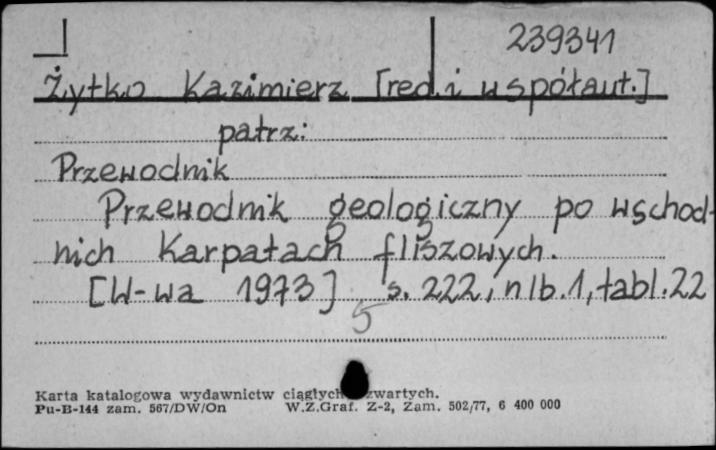 239341
Żytko Kazimierz [red. i współaut.]
patrz:
Przewodnik
Przewodnik geologiczny po wschod-
nich Karpatach fliszowych.
[W-wa 1973] s. 222, nlb. 1, tabl. 22
5
Karta katalogowa wydawnictw ciągłych zwartych.
Pu-B-144 zam. 567/DW/On W.Z.Graf. Z-2, Zam. 502/77, 6 400 000